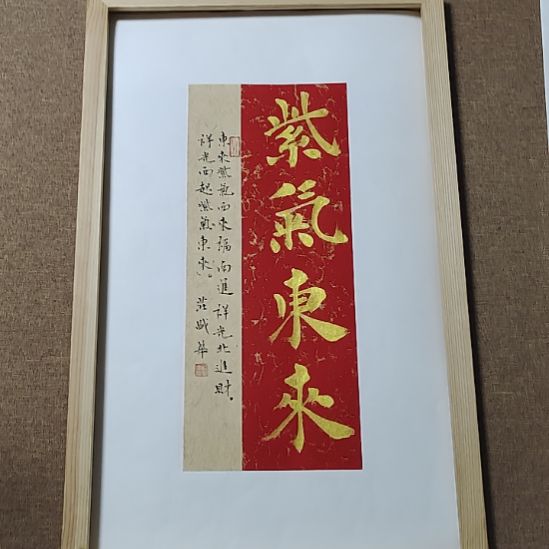 紫氣東來
東來紫氣西來福南進祥光北進財。
祥光西起紫氣東來。莊晟華